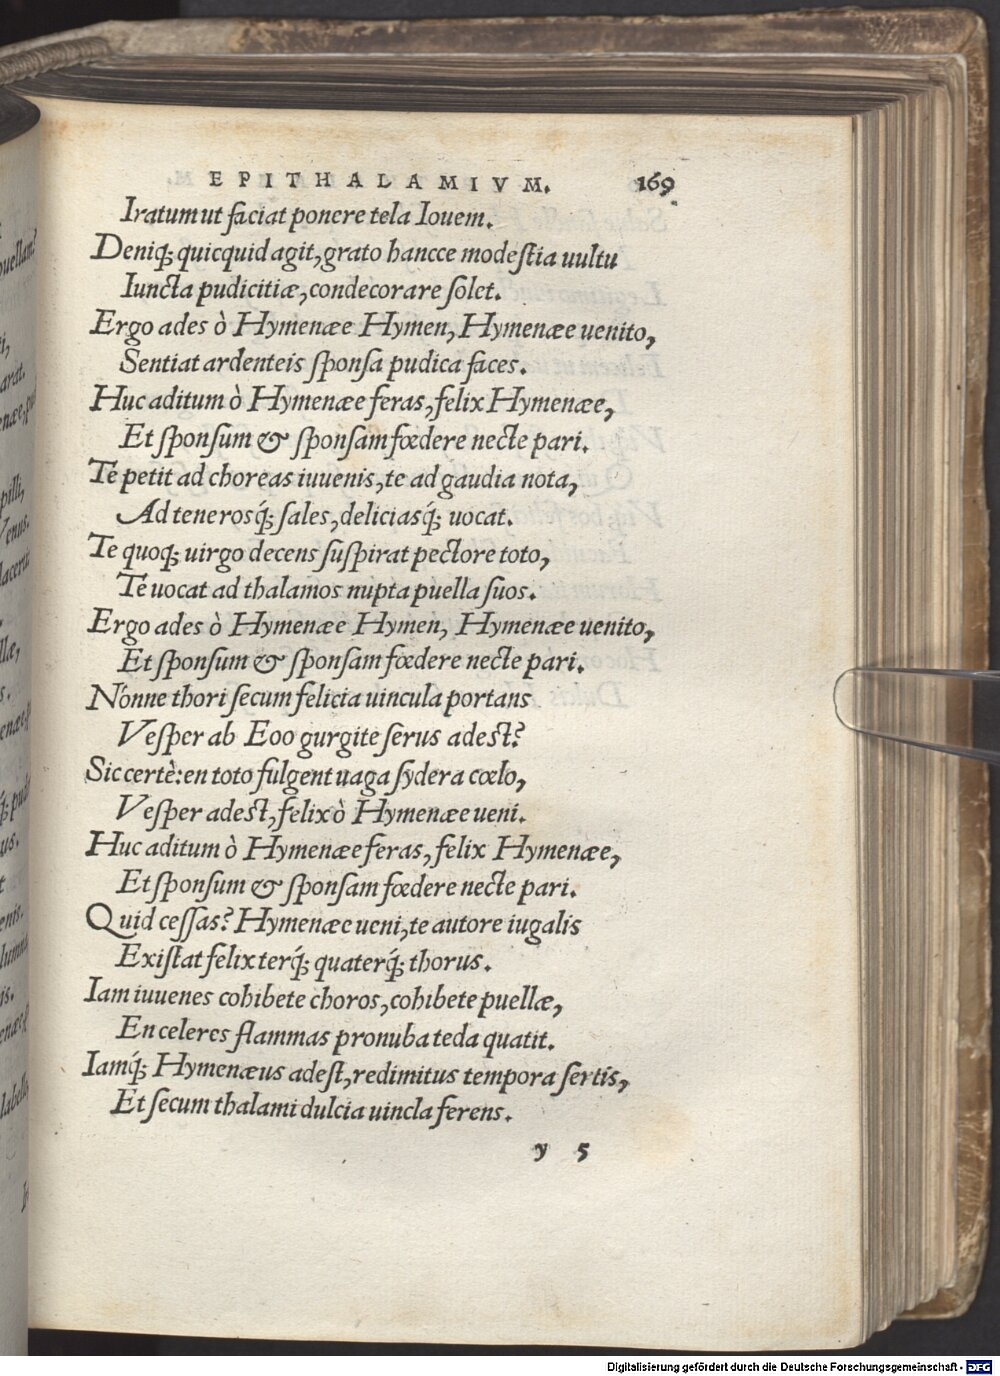 EPITHALAMIVM. 169
Iratum ut faciat ponere tela Iouem.
Deniq; quicquid agit, grato hancce modestia uultu
Iuncta pudicitiæ, condecorare solet.
Ergo ades ò Hymenæe Hymen, Hymenæe uenito,
Sentiat ardenteis sponsa pudica faces.
Huc aditum ò Hymenæe feras, felix Hymenæe,
Et sponsum & sponsam fœdere necte pari.
Te petit ad choreas iuuenis, te ad gaudia nota,
Ad tenerosq́; sales, deliciasq́; uocat.
Te quoq; uirgo decens suspirat pectore toto,
Te uocat ad thalamos nupta puella suos.
Ergo ades ò Hymenæe Hymen, Hymenæe uenito,
Et sponsum & sponsam fœdere necte pari.
Nónne thori secum felicia uincula portans
Vesper ab Eoo gurgite serus adest?
Sic certè: en toto fulgent uaga sydera cœlo,
Vesper adest, felix ò Hymenæe ueni.
Huc aditum ò Hymenæe feras, felix Hymenæe,
Et sponsum & sponsam fœdere necte pari.
Quid cessas? Hymenæe ueni, te autore iugalis
Existat felix terq́; quaterq́; thorus.
Iam iuuenes cohibete choros, cohibete puellæ,
En celeres flammas pronuba teda quatit.
Iamq́; Hymenæus adest, redimitus tempora sertis,
Et secum thalami dulcia uincla ferens.
y 5
Digitalisierung gefördert durch die Deutsche Forschungsgemeinschaft - DFG